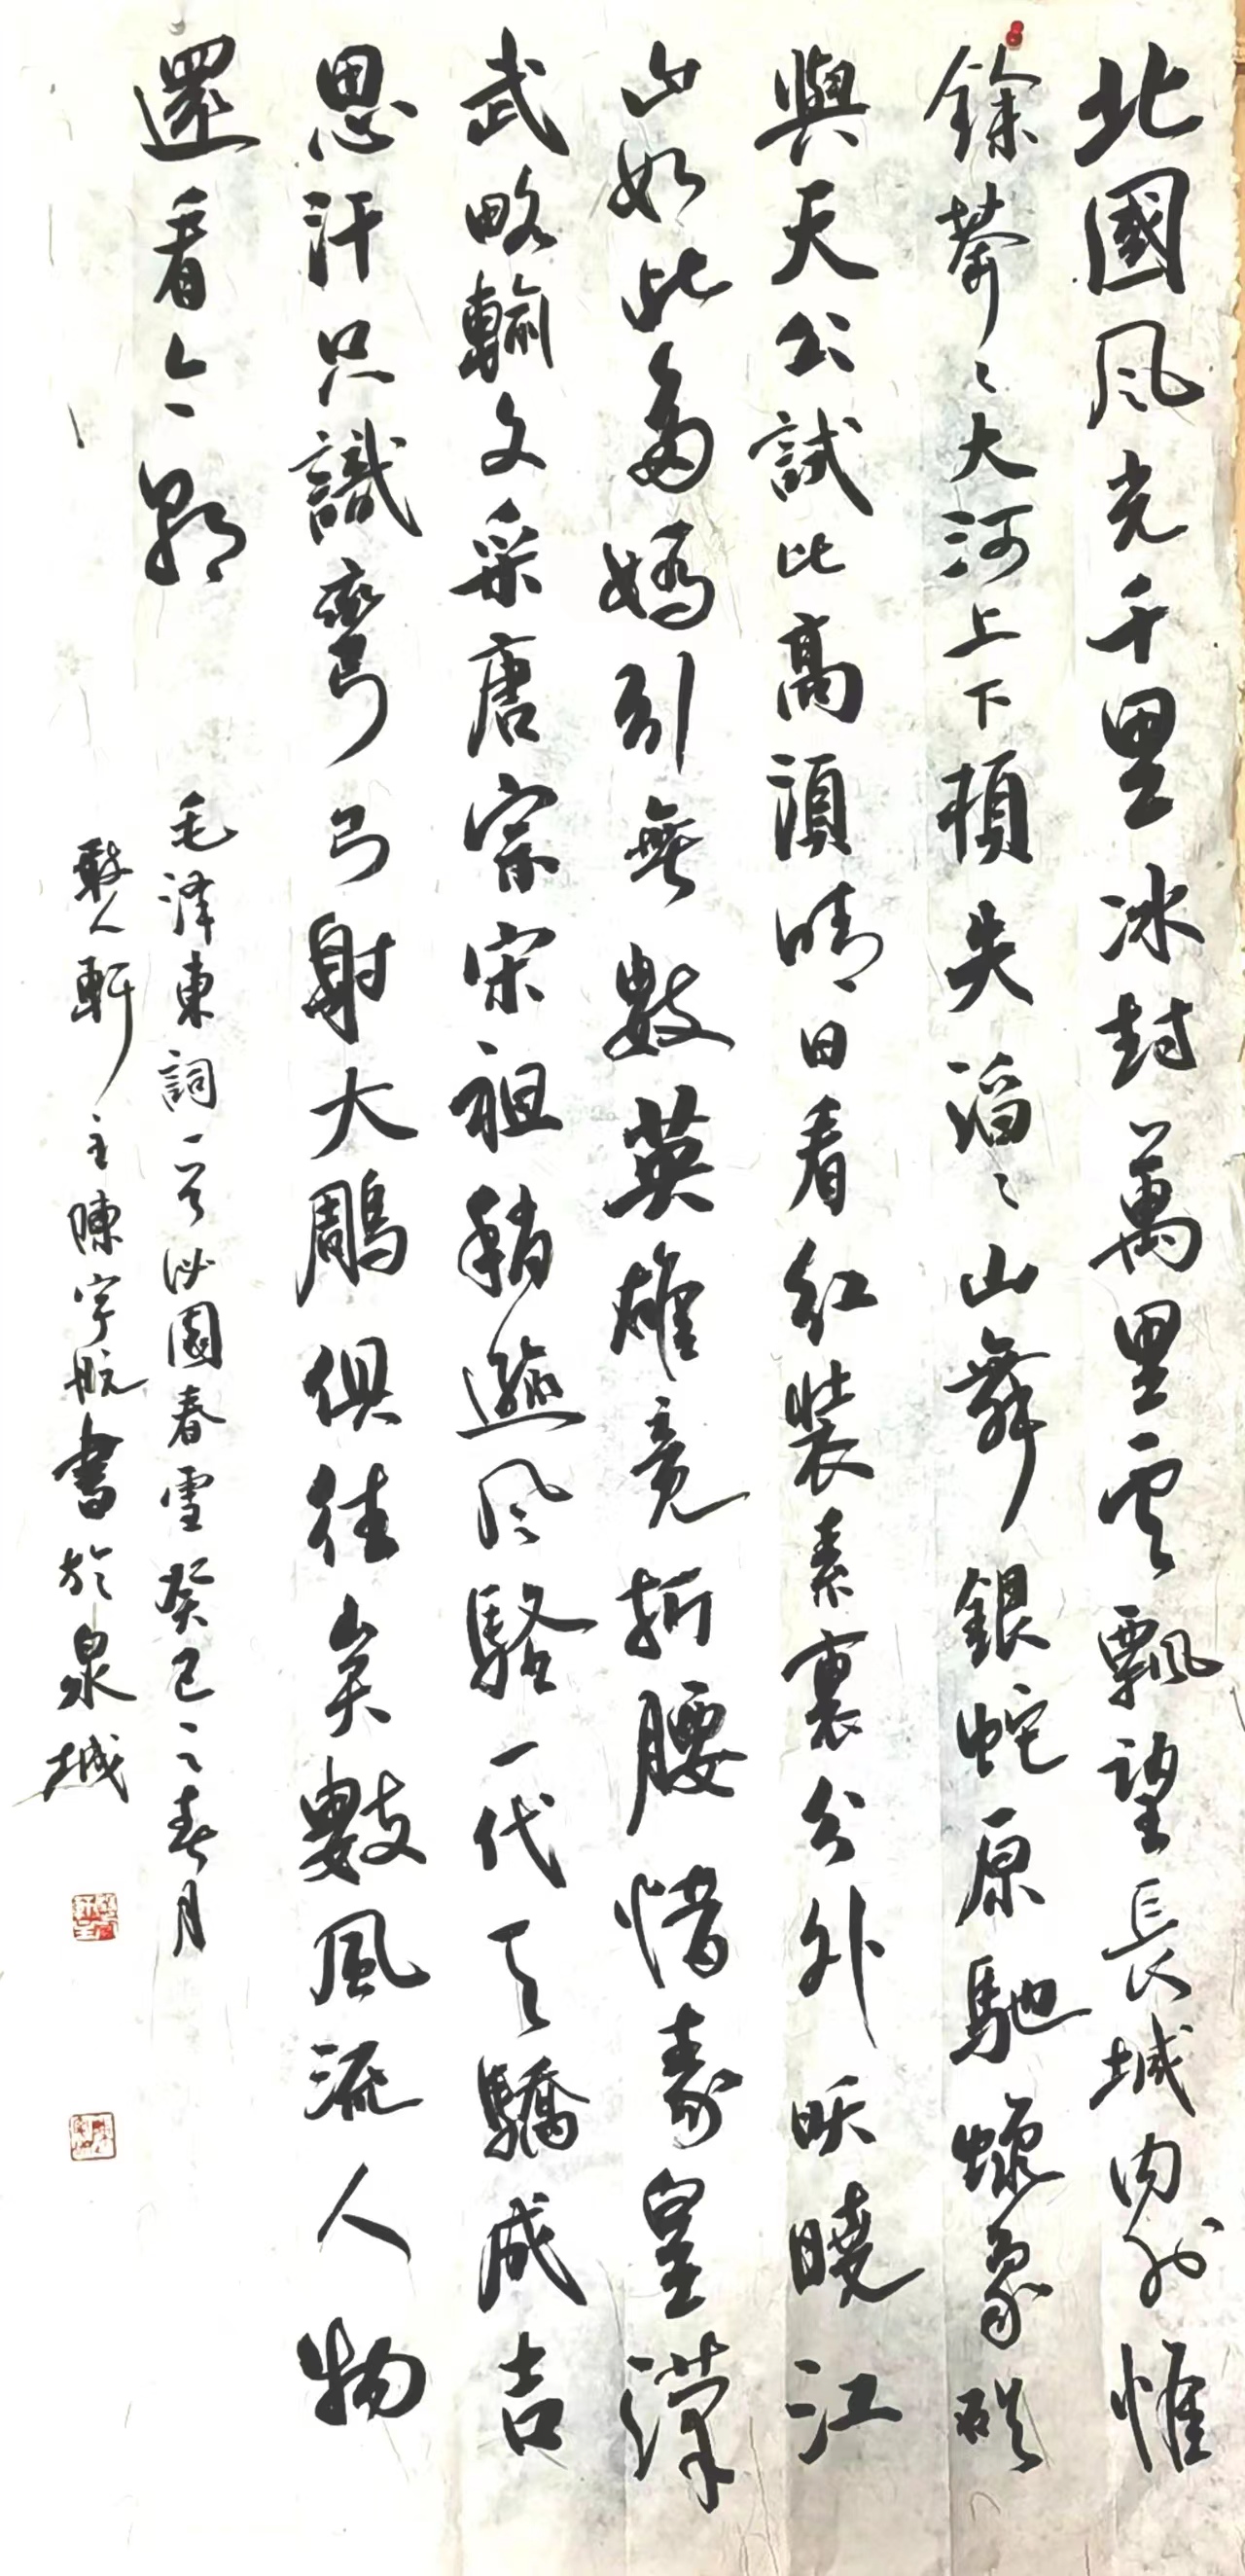 北國风光千里冰封萬里雪飄望長城内外惟
餘莽〻大河上下頓失滔〻山舞銀蛇原馳蠟象欲
與天公試比高須晴日看紅裝素裹分外妖曉江
山如此多嬌引無數英雄竞折腰惜秦皇漢
武略輸文采唐宗宋祖稍遜风騷一代天驕成吉
思汗只識彎弓射大鵰俱往矣數風流人物
還看今朝
毛澤東詞一首沁園春雪癸巳之春月
軒主陳宇航書於泉城